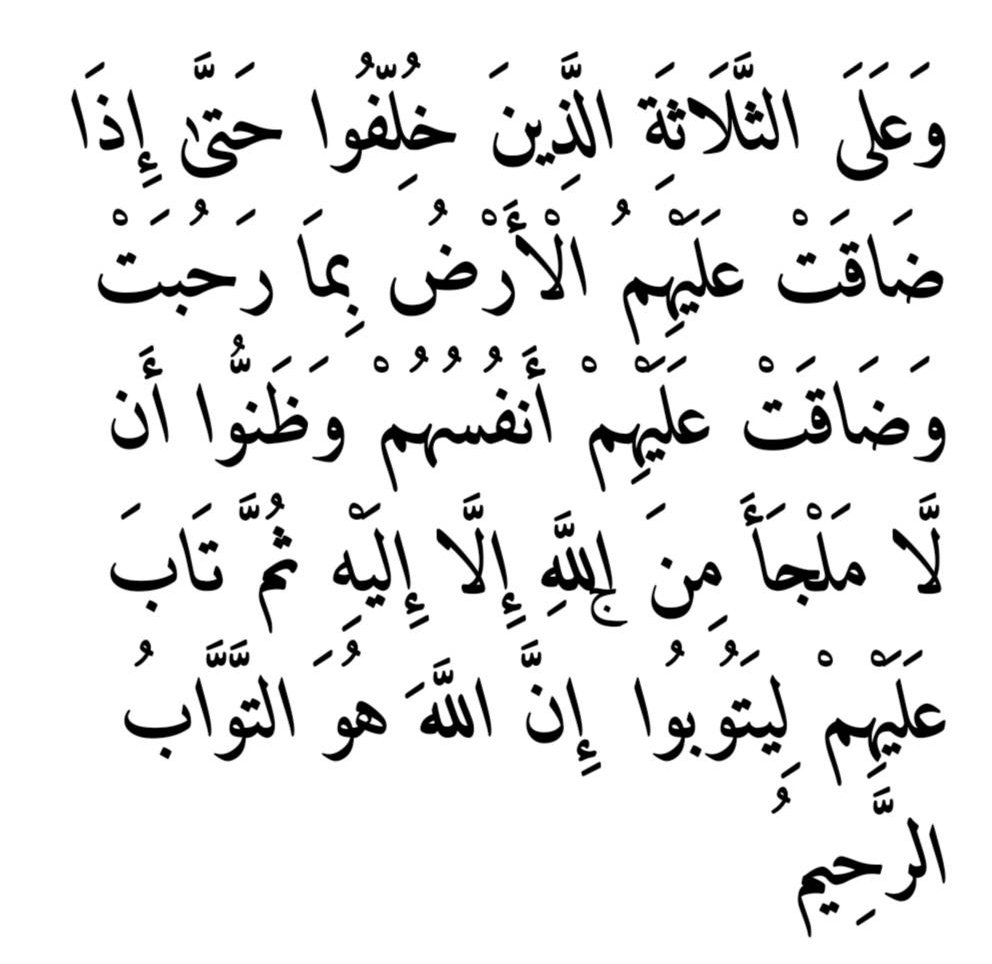 وَعَلَى الثَّلَاثَةِ الَّذِينَ خُلِّفُوا حَتَّىٰ إِذَا
ضَاقَتْ عَلَيْهِمُ الْأَرْضُ بِمَا رَحُبَتْ
وَضَاقَتْ عَلَيْهِمْ أَنفُسُهُمْ وَظَنُّوا أَن
لَّا مَلْجَأَ مِنَ اللَّهِ إِلَّا إِلَيْهِ ثُمَّ تَابَ
عَلَيْهِمْ لِيَتُوبُوا ۚ إِنَّ اللَّهَ هُوَ التَّوَّابُ
الرَّحِيمُ